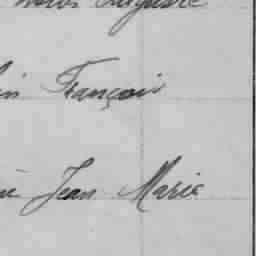 Auguste
in François
Jean Marie